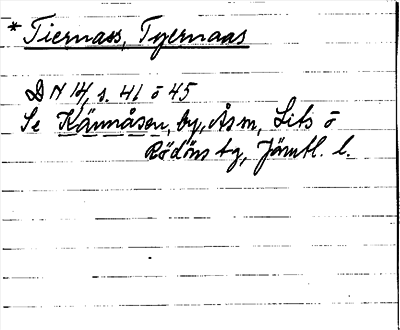 * Tiernass, Tyernaas
DN 14, s. 41 o 45
Se Kännåsen, by, Ås sn, Lits o
Rödöns tg, Jämtl. l.